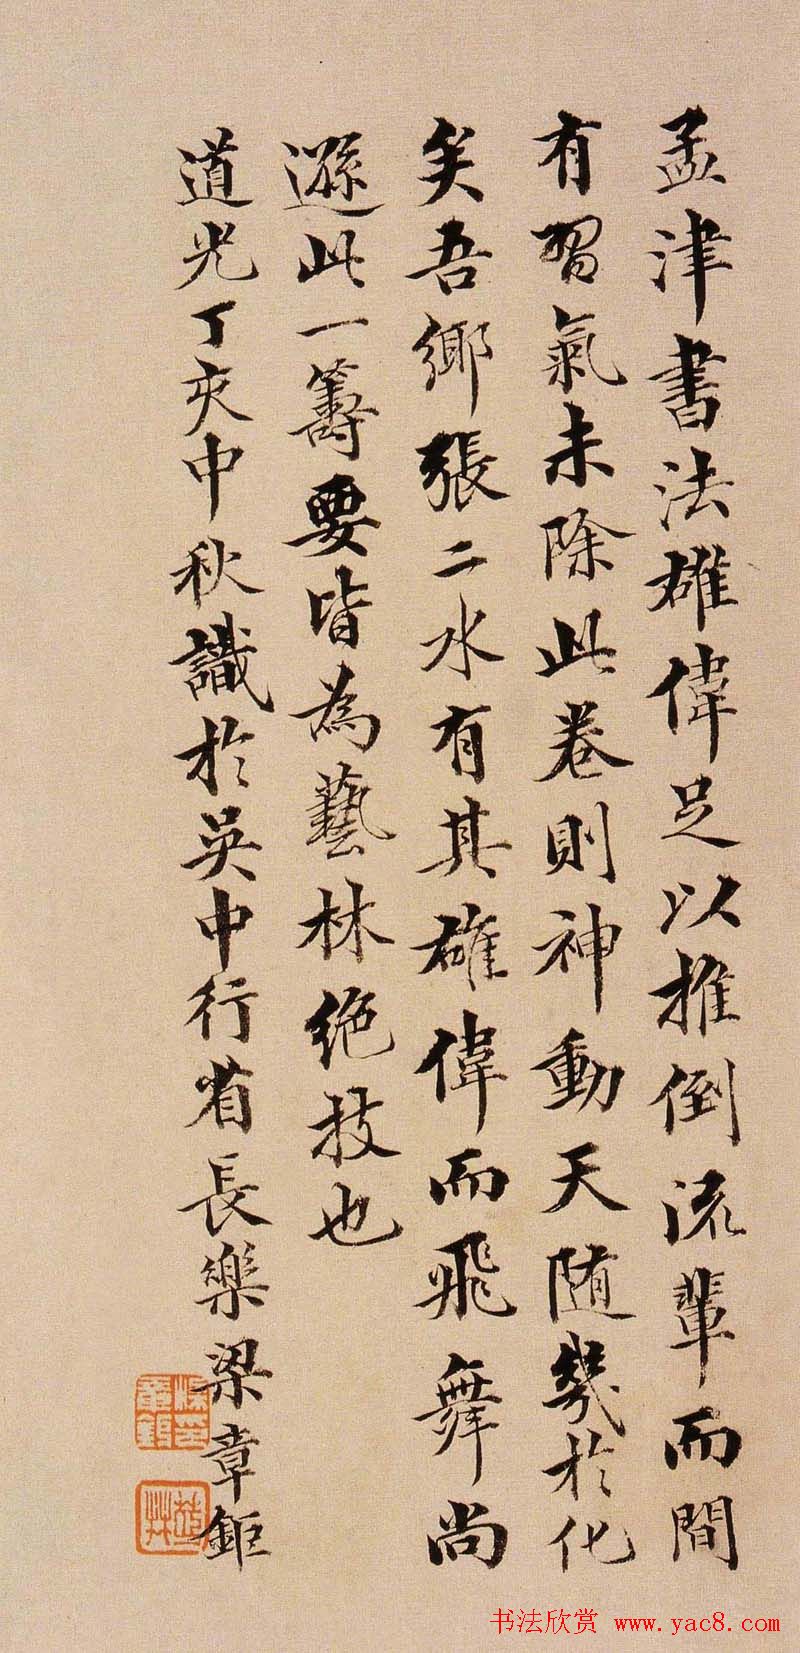 孟津書法雄偉足以推倒流輩而間
有習氣未除此卷則神動天随幾於化
矣吾鄉張二水有其雄偉而飛舞尚
遜此一籌要皆為藝林絕技也
道光丁亥中秋識於吳中行省長樂梁章鉅
书法欣赏 www.yac8.com